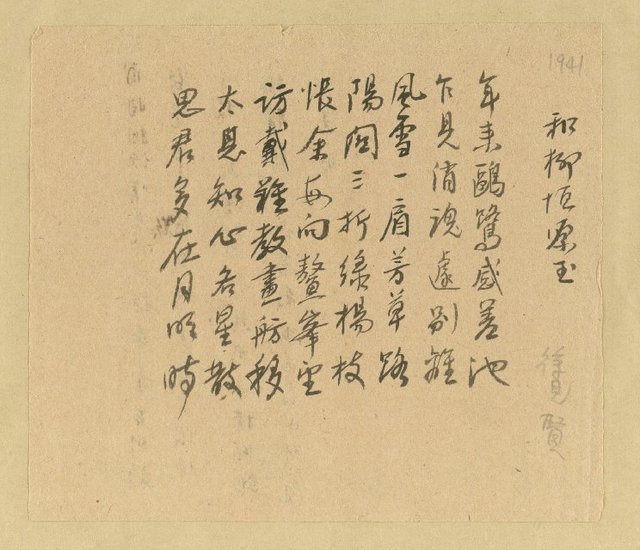 1941
和柳垣原玉
年來鷗鷺感差池
乍見消魂遽別離
風雪一肩芳草路
陽關三折綠楊枝
悵余每向鰲峯望
訪戴難教畫舫移
太息知心各星散
思君多在月明時
賢